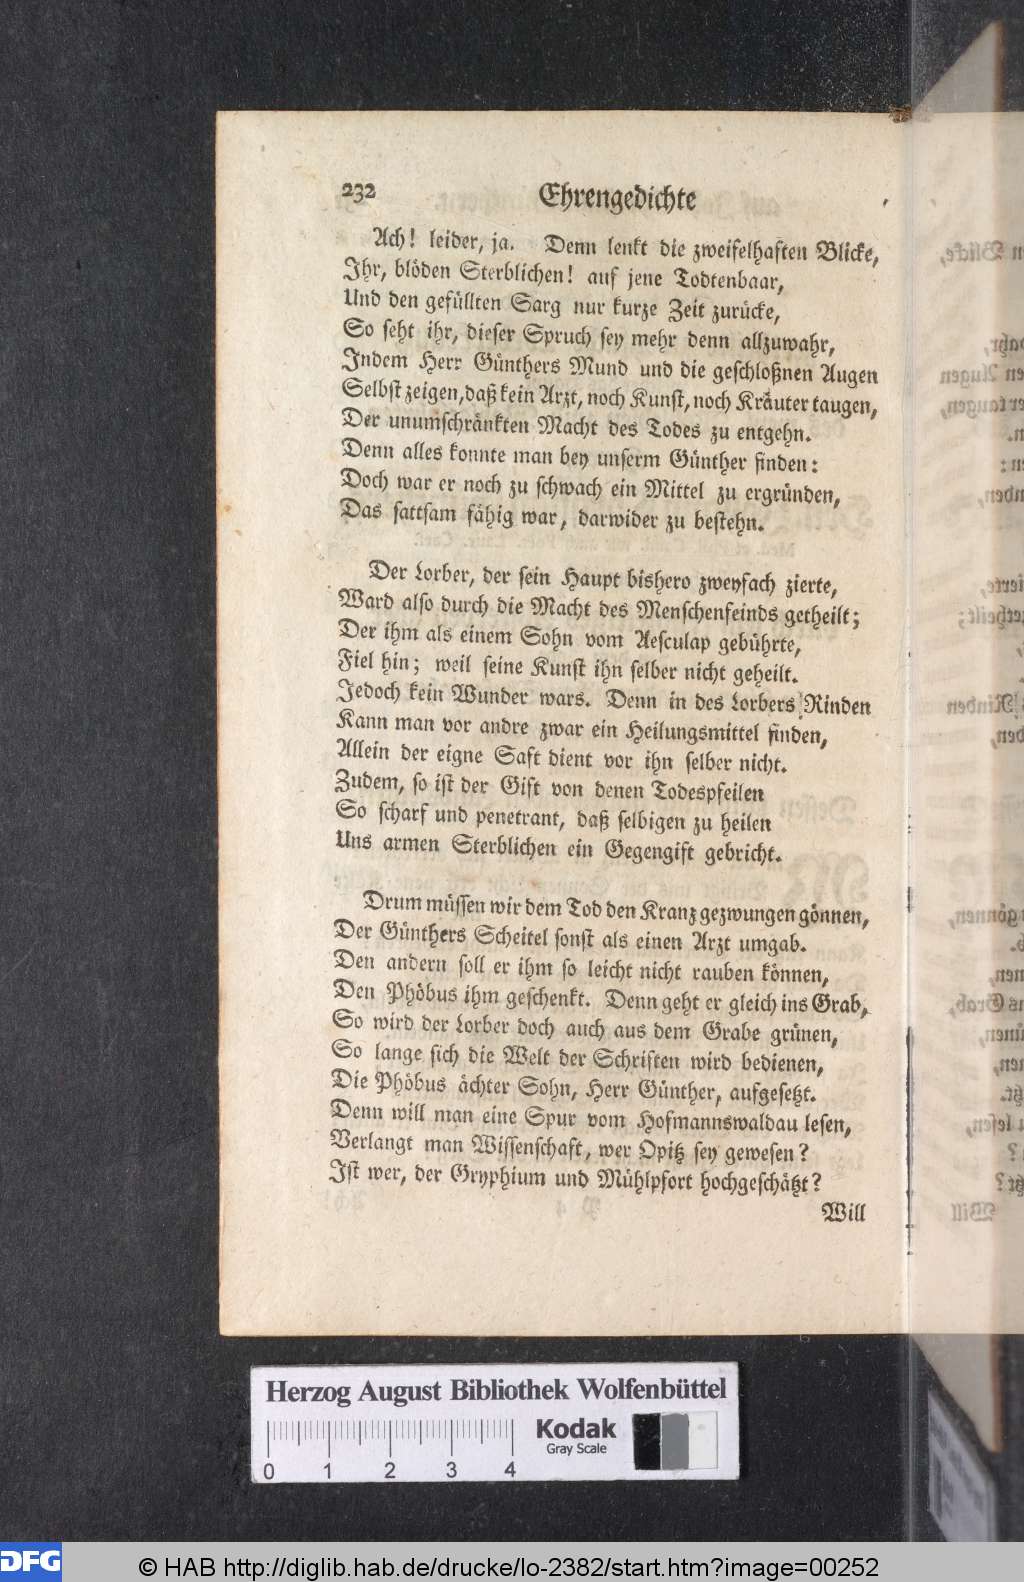 232 Ehrengedichte
Ach! leider, ja. Denn lenkt die zweifelhaften Blicke,
Ihr, blöden Sterblichen! auf jene Todtenbaar,
Und den gefüllten Sarg nur kurze Zeit zurücke,
So seht ihr, dieser Spruch sey mehr denn allzuwahr,
Indem Herr Günthers Mund und die geschloßnen Augen
Selbst zeigen, daß kein Arzt, noch Kunst, noch Kräuter taugen,
Der unumschränkten Macht des Todes zu entgehn.
Denn alles konnte man bey unserm Günther finden:
Doch war er noch zu schwach ein Mittel zu ergründen,
Das sattsam fähig war, darwider zu bestehn.
Der Lorber, der sein Haupt bishero zweyfach zierte,
Ward also durch die Macht des Menschenfeinds getheilt;
Der ihm als einem Sohn vom Aesculap gebührte,
Fiel hin; weil seine Kunst ihn selber nicht geheilt.
Jedoch kein Wunder wars. Denn in des Lorbers Rinden
Kann man vor andre zwar ein Heilungsmittel finden,
Allein der eigne Saft dient vor ihn selber nicht.
Zudem, so ist der Gift von denen Todespfeilen
So scharf und penetrant, daß selbigen zu heilen
Uns armen Sterblichen ein Gegengift gebricht.
Drum müssen wir dem Tod den Kranz gezwungen gönnen,
Der Günthers Scheitel sonst als einen Arzt umgab.
Den andern soll er ihm so leicht nicht rauben können,
Den Phöbus ihm geschenkt. Denn geht er gleich ins Grab,
So wird der Lorber doch auch aus dem Grabe grünen,
So lange sich die Welt der Schriften wird bedienen,
Die Phöbus ächter Sohn, Herr Günther, aufgesetzt.
Denn will man eine Spur vom Hofmannswaldau lesen,
Verlangt man Wissenschaft, wer Opitz sey gewesen?
Ist wer, der Gryphium und Mühlpfort hochgeschätzt?
Will
Herzog August Bibliothek Wolfenbüttel
Kodak
Gray Scale
0 1 2 3 4
DFG
© HAB http://diglib.hab.de/drucke/lo-2382/start.htm?image=00252